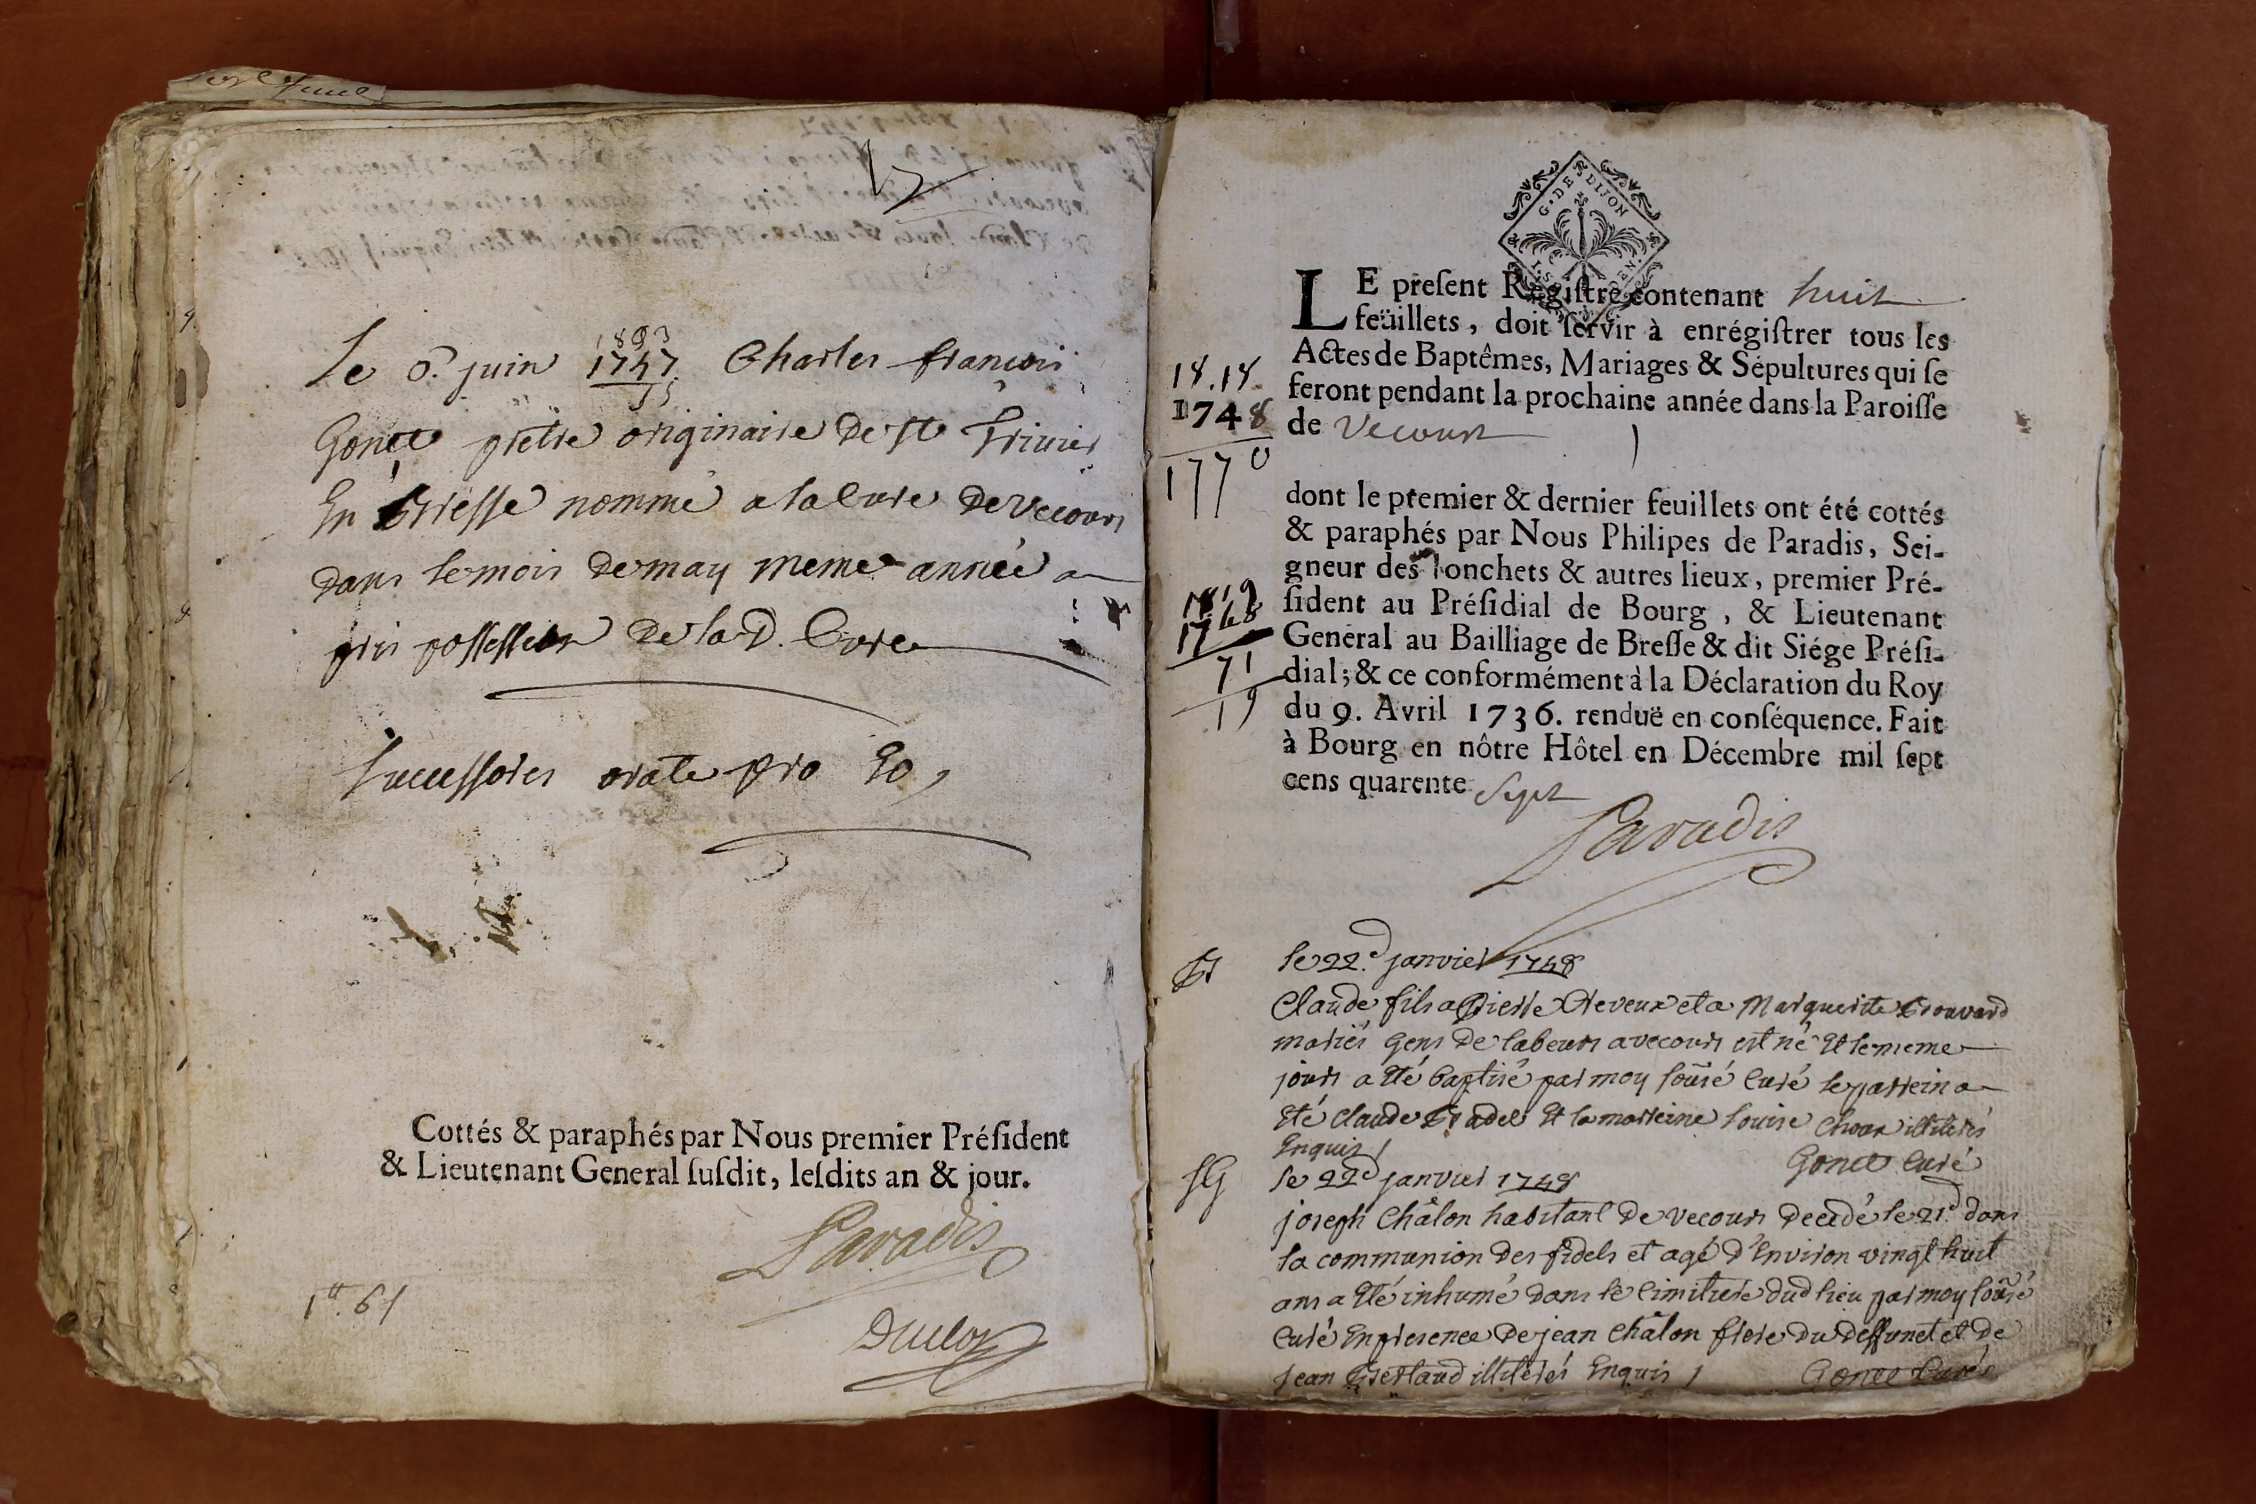 Le 6e juin 1747 Charles françois
Gonet prêtre originaire de ste Trivier
En Bresse nommé a la Cure de Vecours
dans le mois de may meme année a
pris possession de la d. Cure
Successores orate pro eo
Cottés & paraphés par Nous premier Préſident
& Lieutenant General ſuſdit, leſdits an & jour.
Paradis
Duclos
G. DE DIJON
LE preſent Regiſtre contenant huit
feüillets, doit ſervir à enrégiſtrer tous les
Actes de Baptêmes, Mariages & Sépultures qui ſe
feront pendant la prochaine année dans la Paroiſſe
de Vecours
18.18
1748
1770
dont le premier & dernier feuillets ont été cottés
& paraphés par Nous Philipes de Paradis, Sei-
gneur des Jonchets & autres lieux, premier Pré-
ſident au Préſidial de Bourg, & Lieutenant
General au Bailliage de Breſſe & dit Siége Préſi-
dial; & ce conformément à la Déclaration du Roy
du 9. Avril 1736. renduë en conſéquence. Fait
à Bourg en nôtre Hôtel en Décembre mil ſept
cens quarente Sept
1819
1748
71
19
Paradis
le 22.d janvier 1748
Claude fils a Pierre Neveux et a Marguerite Brouvard
mariés gens de labeurs a vecours est né Et le meme
jours a Eté baptisé par moy soûsé Curé le parrein a
Eté Claude Bradel Et la marreine Louise Choax illiterés
Enquis
Gonet Curé
SG le 22d janvier 1748
joseph Châlon habitant de vecours decedé le 21d dans
la communion des fidels et agé d'Environ vingt huit
ans a Eté inhumé dans le Cimitiere dud lieu par moy soûsé
Curé En presence de jean Châlon frere du deffunct et de
jean Bretland illiterés Enquis
Gonet Curé